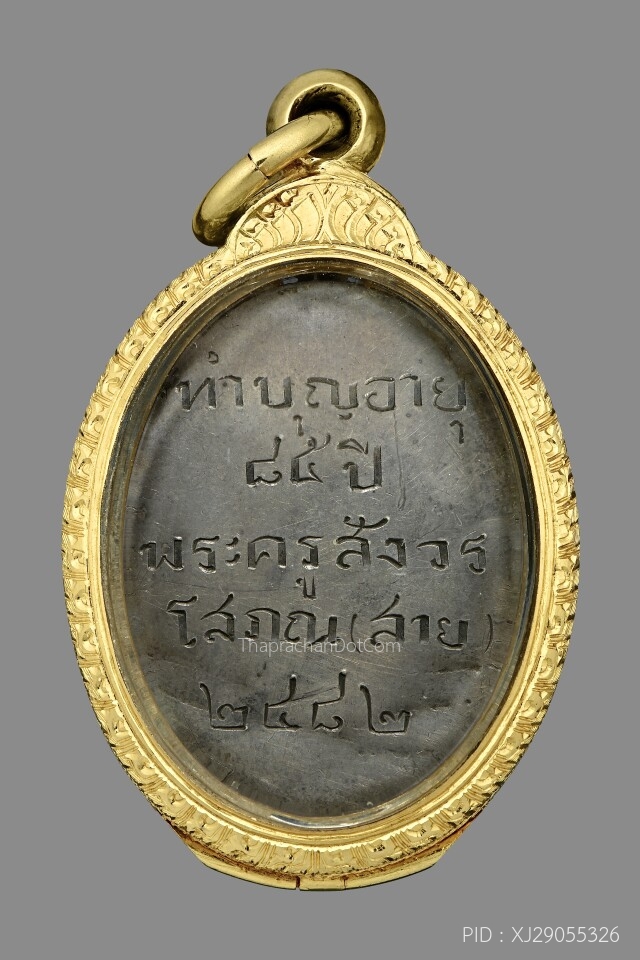 ทำบุญอายุ
๘๕ ปี
พระครูสังวร
โสภณ(สาย)
ThaprachanDotCom
๒๔๘๒
PID : XJ29055326